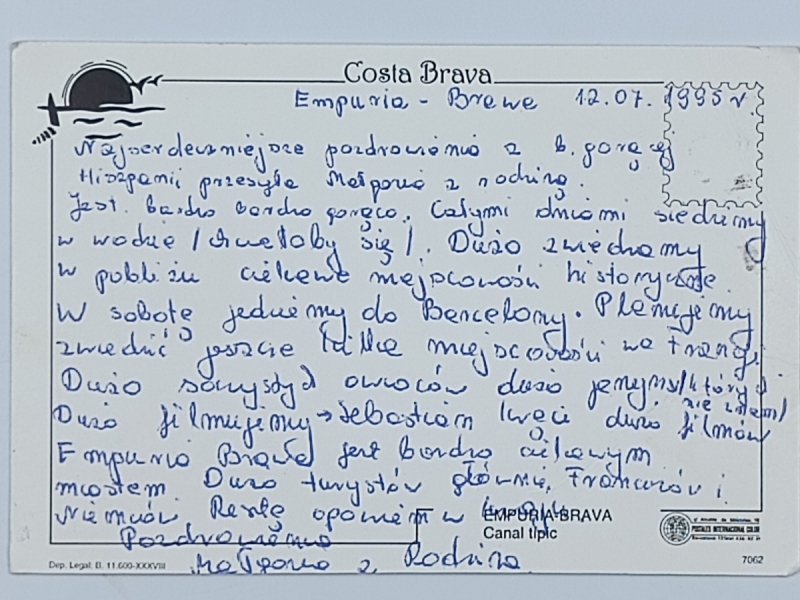 Costa Brava
Empuria - Brawa 12.07.1995 r.
Najserdeczniejsze pozdrowienia z b. gorącej
Hiszpanii przesyła Małgosia z rodziną.
Jest bardzo bardzo gorąco. Całymi dniami siedzimy
w wodzie / chciałoby się /. Dużo zwiedzamy
w pobliżu ciekawe miejscowości historyczne.
W sobotę jedziemy do Barcelony. Planujemy
zwiedzić jeszcze kilka miejscowości we Francji.
Dużo soczystych owoców dużo jemy / których
nie znam /
Dużo filmujemy → Sebastian kręci dużo filmów
Empuria Brawa jest bardzo ciekawym
miastem. Dużo turystów głównie Francuzów i
Niemców. Resztę opowiem w kraju
EMPURIA-BRAVA
Canal típic
Pozdrowienia
Małgosia z Rodziną.
Dep. Legal: B. 11.600-XXXVIII
7062